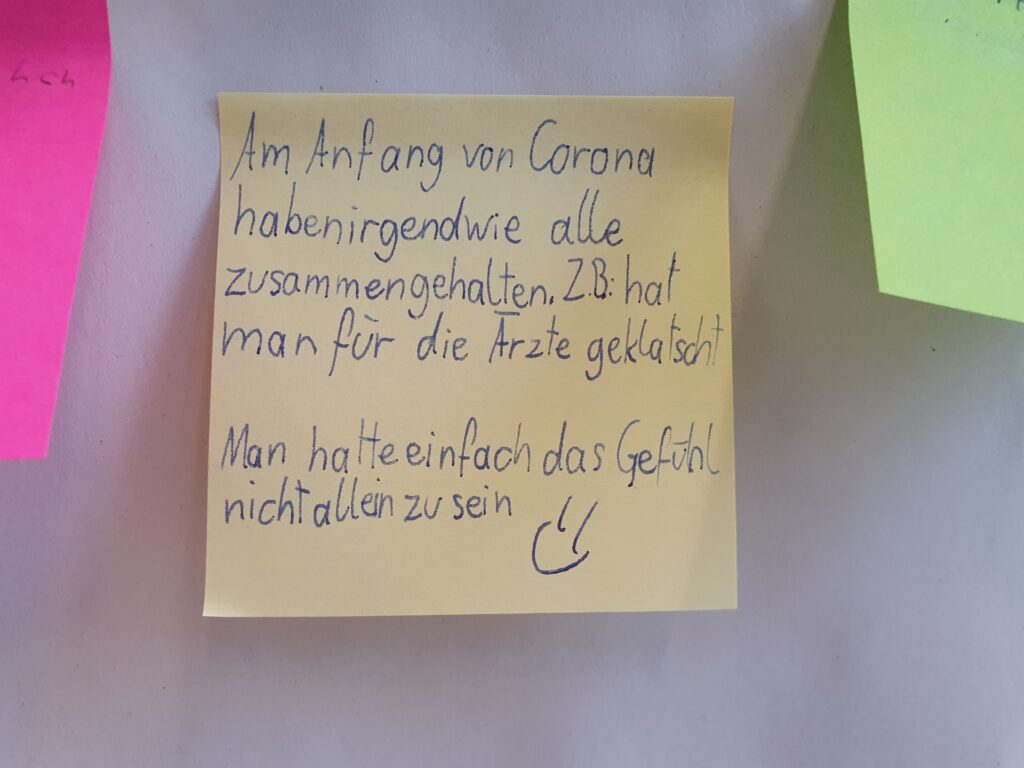 Am Anfang von Corona
habenirgendwie alle
zusammengehalten. Z.B.: hat
man für die Ärzte geklatscht
Man hatte einfach das Gefühl
nicht allein zu sein